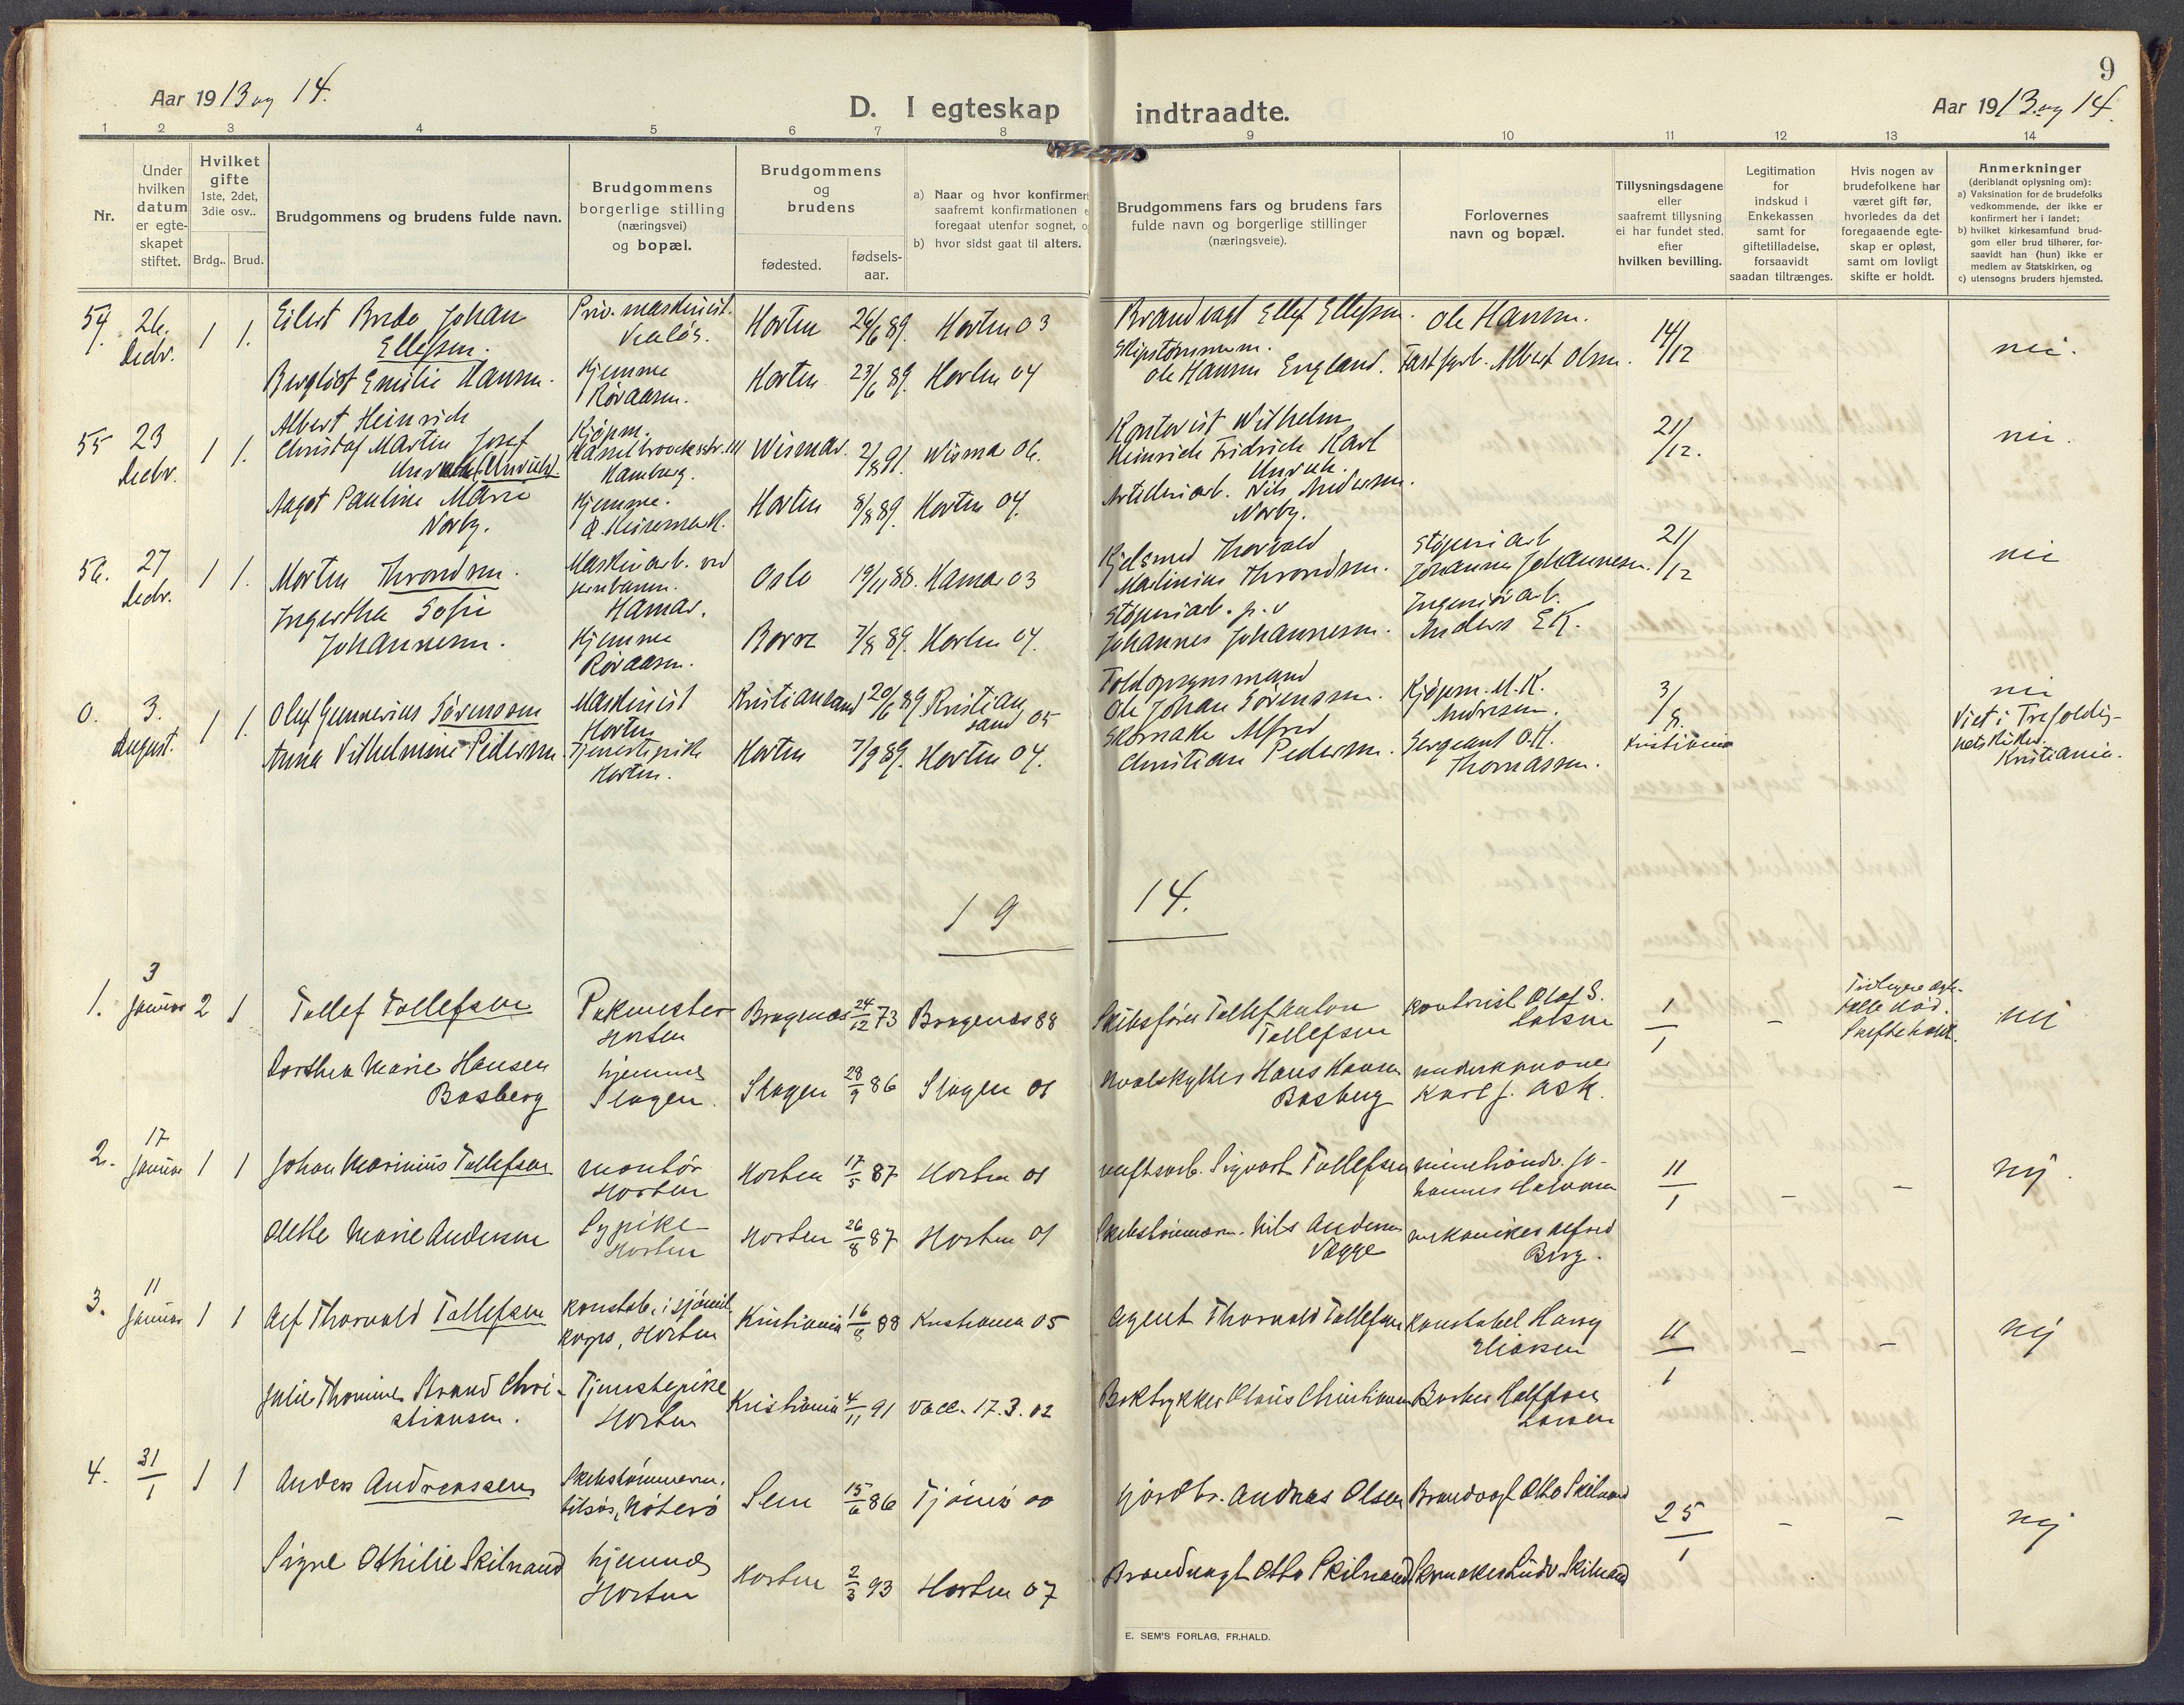 9
Aar 1913 og 14.
D. I egteskap indtraadte.
Aar 1913 og 14.
1 2 3 4 5 6 7 8 9 10 11 12 13 14
Nr.
Under hvilken datum er egte-skapet stiftet.
Hvilket gifte 1ste, 2det, 3die osv..
Brdg.. Brud.
Brudgommens og brudens fulde navn.
Brudgommens borgerlige stilling (næringsvei) og bopæl.
Brudgommens og brudens
fødested. fødsels-aar.
a) Naar og hvor konfirmert
saafremt konfirmationen
foregaat utenfor sognet,
b) hvor sidst gaat til alters.
Brudgommens fars og brudens fars
fulde navn og borgerlige stillinger
(næringsveie).
Forlovernes navn og bopæl.
Tillysningsdagene eller saafremt tillysning ei har fundet sted, efter hvilken bevilling.
Legitimation for indskud i Enkekassen samt for giftetilladelse, forsaavidt saadan tiltrænges.
Hvis nogen av brudefolkene har været gift før, hvorledes da det foregaaende egte-skap er opløst, samt om lovligt skifte er holdt.
Anmerkninger
(deriblandt oplysning om):
a) Vaksination for de brudefolks vedkommende, der ikke er konfirmert her i landet;
b) hvilket kirkesamfund brud-gom eller brud tilhører, for-saavidt han (hun) ikke er medlem av Statskirken, og
c) utensogns bruders hjemsted.
54. 26. Decbr. 1 1. Eilert Brede Johan Ellefsen. Horten 89. Horten 03 Brandvagt Ellef Ellefsen. Ole Hansen. 14/12 nei.
Bergliot Emilie Hansen. Hjemme Røraasen. Horten 23/6 89. Horten 04 Skipstømmerm. Ole Hansen England. Albert Olsen.
55 23 Decbr. 1 1. Albert Heinrich Christof Martin Josef Kjøpm. Hamburg. Wismar. 2/8 91. Wisma 06. Kontorist Wilhelm Heinrich Fridrich Karl Unruh. 21/12. nei.
Aagot Pauline Marie Norby. Hjemme. Horten 8/8 89. Horten 04. Artilleriarb. Nils Andersen Norby.
56. 27 Decbr. 1 1. Morten Throndsen. Maskinarb. ved jernbanen. Hamar. Oslo 19/11 88. Hamar 03 Kjelsmed Thorvald Martinius Throndsen. Støperiarb Johannes Johannesen. 21/12 nei
Ingertha Sofie Johannesen. Hjemme Røraasen. Borre 7/8 89. Horten 04. Støperiarb. p.v Johannes Johannesen. Ingeniørarb. Anders Ek.
0. 3. August. 1 1. Oluf Gunnerius Sørensen Maskinist Horten Kristiansand 20/6 89 Kristiansand 05 Toldopsynsmand Ole Johan Sørenssen. Kjøpm. M.K. Andresen. 3/8. Kristiania nei Viet i Trefoldighetskirken. Kristiania.
Anna Vilhelmine Pedersen. Tjenestepike Horten. Horten 7/9 89. Horten 04. Skomaker Alfred Christian Pedersen. Sergeant O.H. Thomassen.
19 14.
1. 3 Januar 2 1 Tollef Tollefsen Pakmester Horten Bragenæs 24/12 73 Bragenæs 88 Skibsfører Tollef Anton Tollefsen kontorist Olaf S. Larsen 1/1 –  nei
Dorthea Marie Hansen Basberg hjemme Slagen. Slagen 28/9 86 Slagen 01 Hvalskytter Hans Hansen Basberg underkanoner Karl J. Ask.
2. 17 Januar 1 1 Johan Marinius Tollefsen montør Horten Horten 17/5 87 Horten 01 verftsarb. Sigvart Tollefsen 11/1 – – nej.
Olette Marie Andersen Sypike Horten Horten 26/8 87 Horten 01 Skibstømmerm. Nils Andersen Vegge mekaniker Alfred Berg.
3. 11 Januar 1 1 Alf Thorvald Tollefsen konstab. i sjømil. korps, Horten Kristiania 16/8 88 Kristiania 05 Agent Thorvald Tollefsen konstabel Harry Eliassen 11/1 – – nej
Julie Thomine Strand Christiansen. Tjenestepike Horten Kristiania 4/11 91 vacc. 17.3.02 Boktrykker Claus Christiansen Barber Halfdan Larsen
4. 31/1 1 1 Anders Andreassen Skibstømmerm. tilsøs, Nøterø Sem 15/6 86 Tjømø 00 gaardbr. Andreas Olsen Brandvagt Otto Skilnand 25/1 – – nej
Signe Othilie Skilnand hjemme Horten Horten 2/3 93 Horten 07 Brandvagt Otto Skilnand Skomaker Ludv. Skilnand
E. SEM'S FORLAG, FR.HALD.